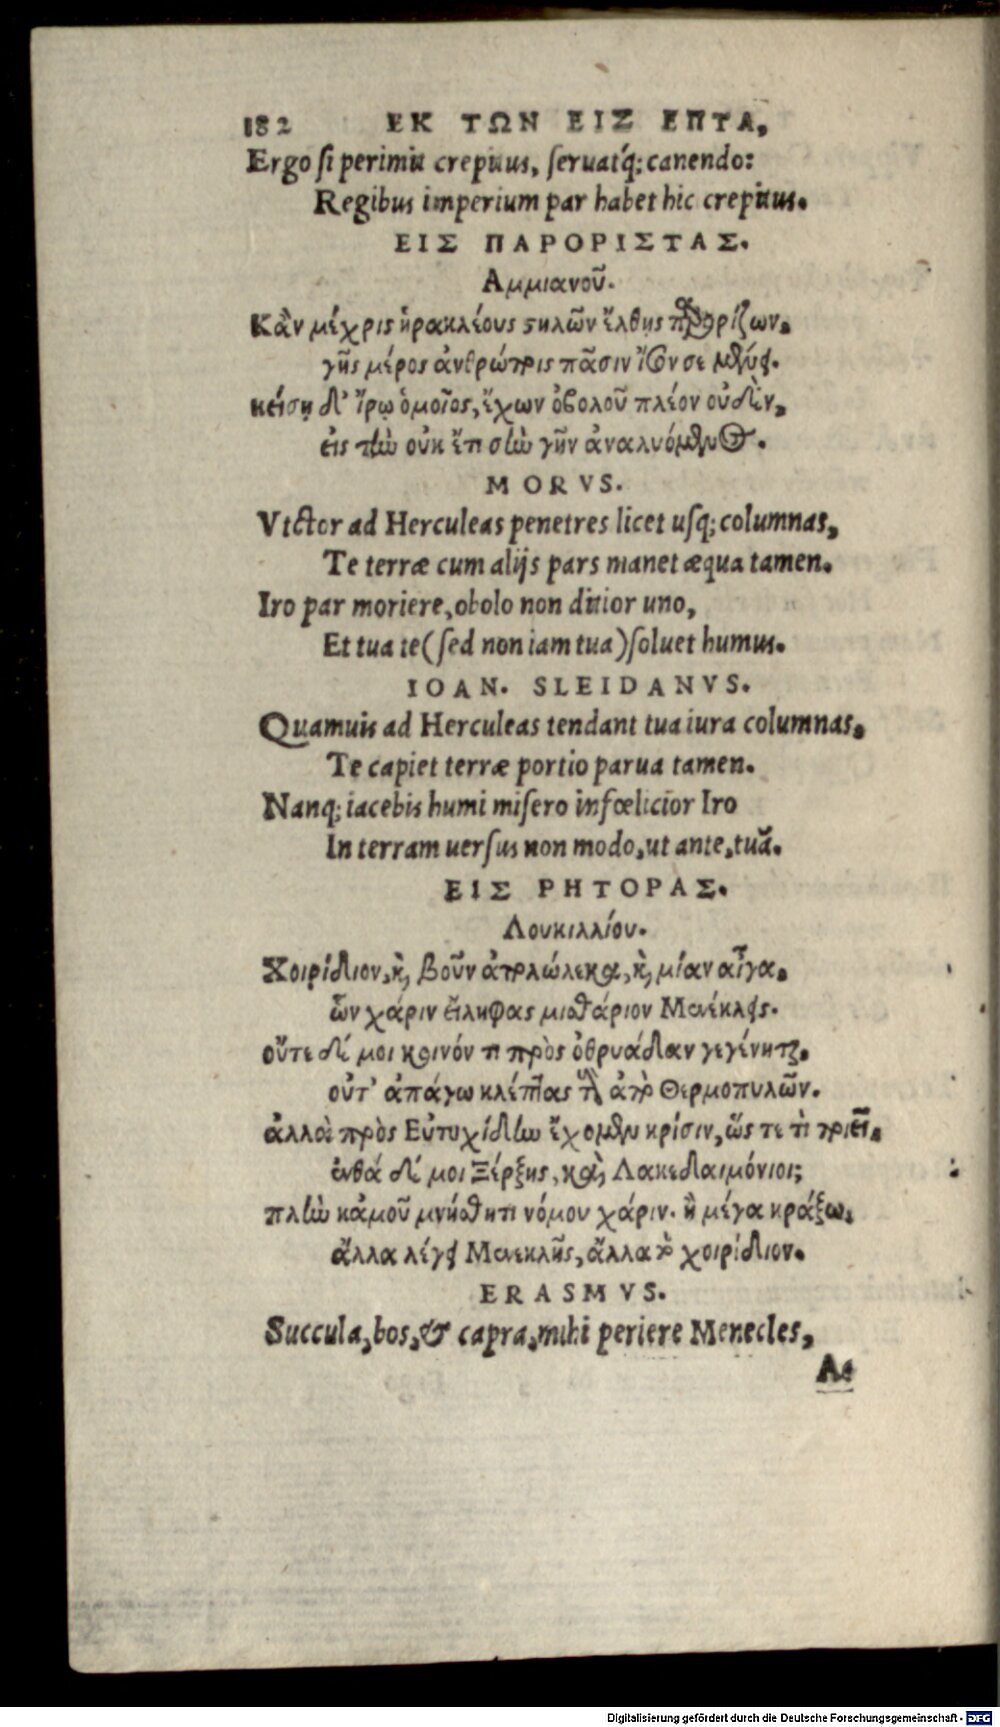 182 ΕΚ ΤΩΝ ΕΙΣ ΕΠΤΑ,
Ergo si perimit crepitus, seruatq́; canendo:
Regibus imperium par habet hic crepitus.
ΕΙΣ ΠΑΡΟΡΙΣΤΑΣ.
Αμμιανοῦ.
Κἂν μέχρις ἡρακλέους ϛηλῶν ἔλθῃς παρορίζων,
γῆς μέρος ἀνθρώποις πᾶσιν ἴσον σε μένει.
κείσῃ δ' ἴρῳ ὁμοῖος, ἔχων ὀβολοῦ πλέον οὐδὲν,
εἰς τὴν οὐκ ἔτι σὴν γῆν ἀναλυόμενος.
MORVS.
Victor ad Herculeas penetres licet usq; columnas,
Te terræ cum alijs pars manet æqua tamen.
Iro par moriere, obolo non ditior uno,
Et tua te (sed non iam tua) soluet humus.
IOAN. SLEIDANVS.
Quamuis ad Herculeas tendant tua iura columnas,
Te capiet terræ portio parua tamen.
Nanq; iacebis humi misero infœlicior Iro
In terram uersus non modo, ut ante, tuā.
ΕΙΣ ΡΗΤΟΡΑΣ.
Λουκιλλίου.
Χοιρίδιον, κỳ βοῦν ἀπολώλεκα, κỳ μίαν αἶγα,
ὧν χάριν εἴληφας μισθάριον Μενέκλεις.
οὔτε δέ μοι κοινόν τι πρὸς ὀθρυάδαν γεγένηται,
οὔτ' ἀπάγω κλέπτας τοὺς ἀπὸ Θερμοπυλῶν.
ἀλλὰ πρὸς Εὐτυχίδην ἔχομεν κρίσιν, ὥς τε τὶ ποιεῖ,
ἐνθά δέ μοι Ξέρξης, καὶ Λακεδαιμόνιοι;
πλὴν κἀμοῦ μνήσθητι νόμου χάριν. ἢ μέγα κράξω,
ἄλλα λέγει Μενεκλῆς, ἄλλα τὸ χοιρίδιον.
ERASMVS.
Succula, bos, & capra, mihi periere Menecles,
Ac